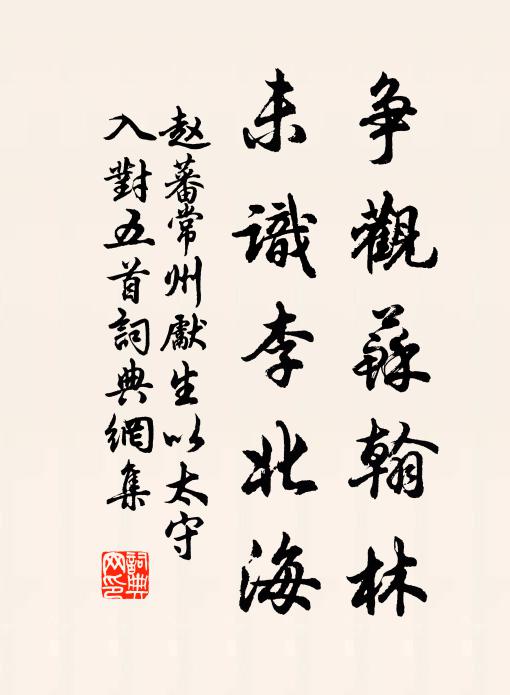 争觀蘇翰林
未識李北海
赵蕃常州獻生以太守
入對五首詞典網集
詞典網印